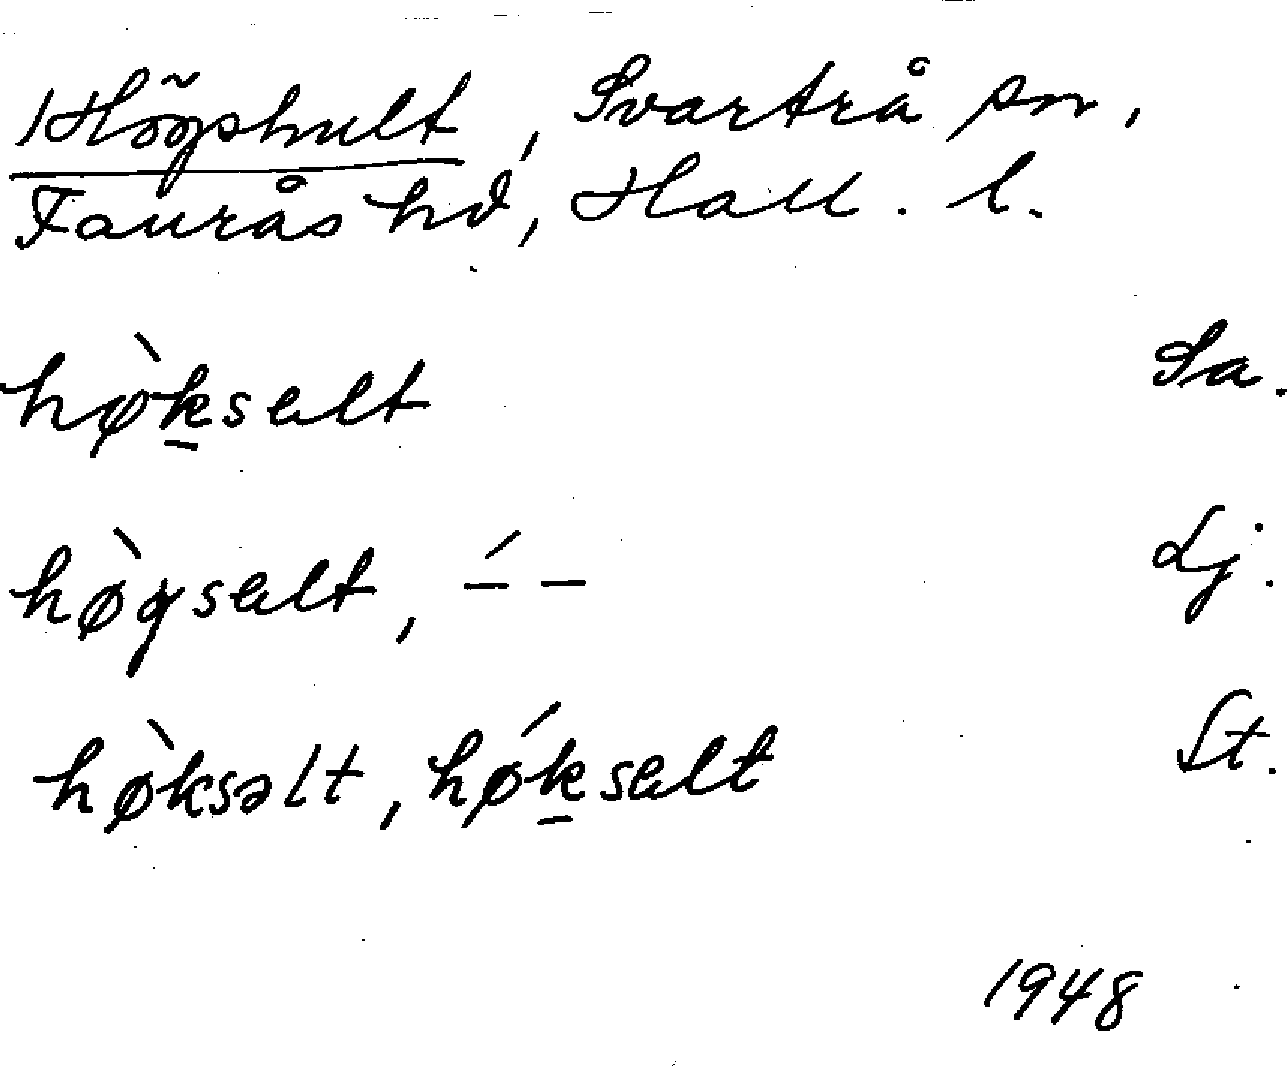 Högshult, Svartrå sn,
Faurås hd, Hall. l.
hø̀k̠sælt Sa.
hø̀gsælt, –́ – Lj.
hø̀ksəlt, hǿk̠sælt St.
1948